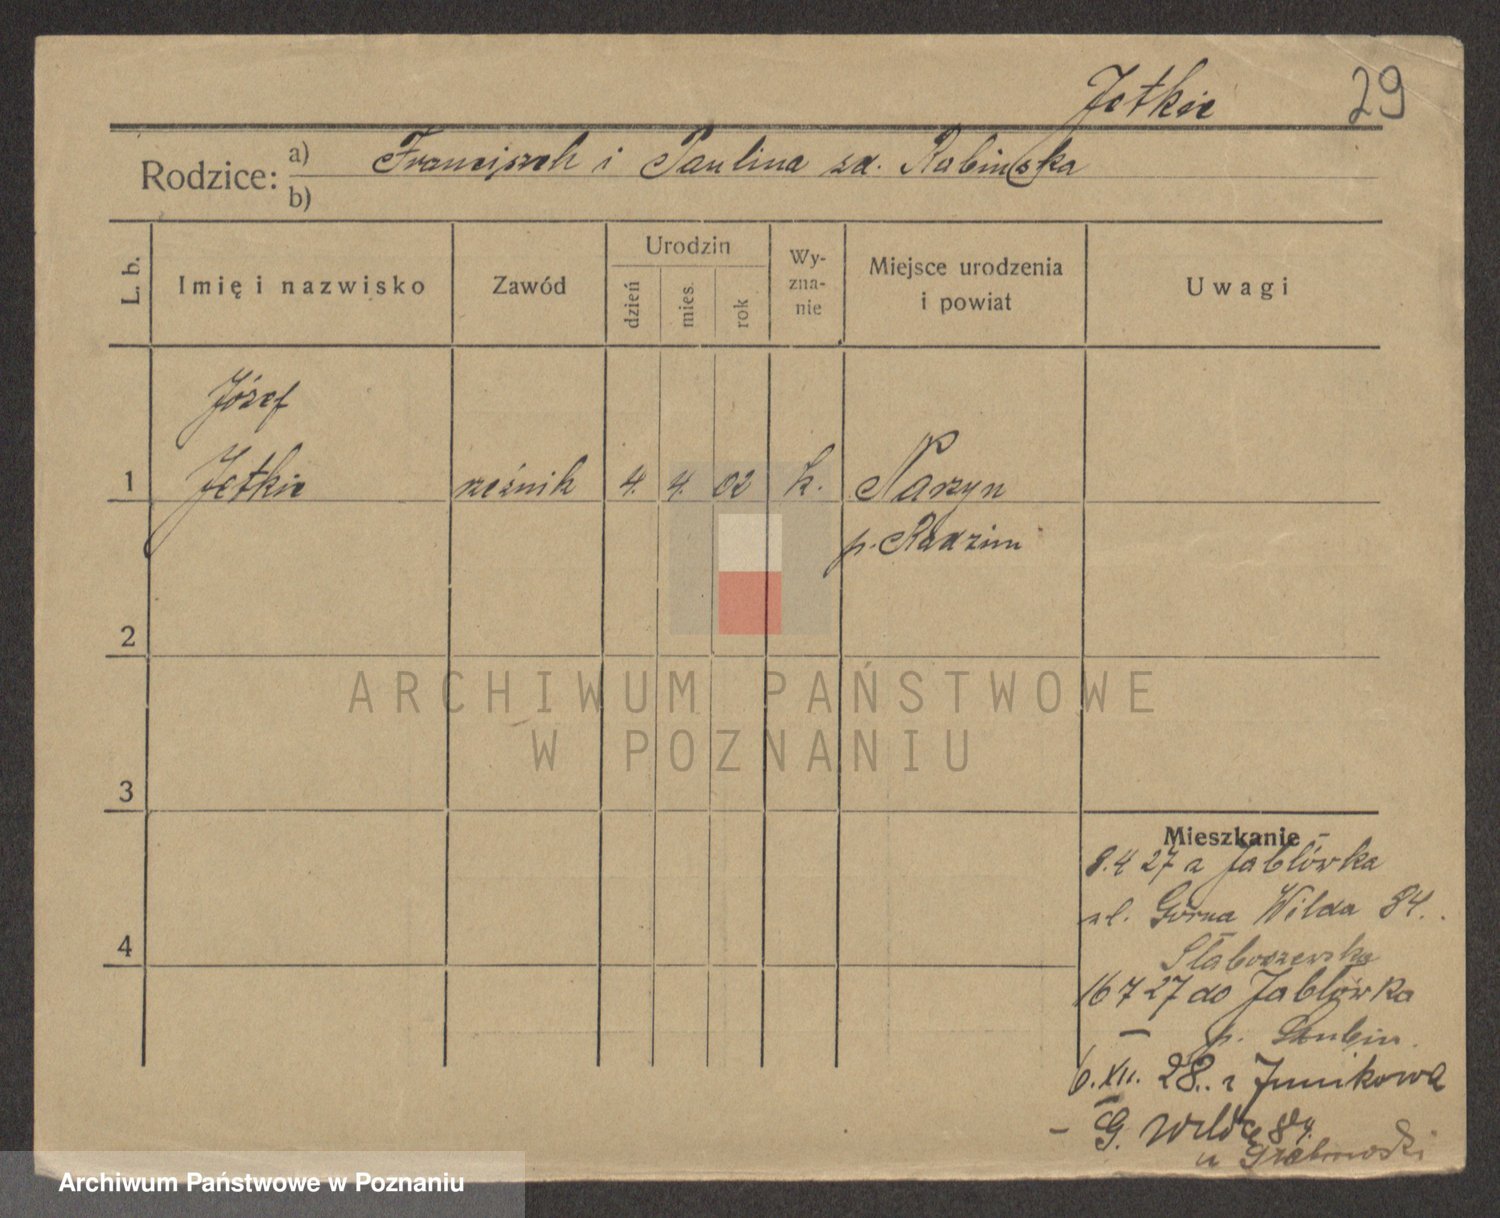 Jetkie 29
Rodzice: a) Franciszek i Paulina zd. Rabińska
b)
L. b.
Imię i nazwisko
Zawód
Urodzin
dzień
mies.
rok
Wy-
zna-
nie
Miejsce urodzenia
i powiat
Uwagi
Józef
1 Jetkie rzeźnik 4. 4. 02 k. Parzyn
p. Radzim
2
ARCHIWUM PAŃSTWOWE
W POZNANIU
3
Mieszkanie
8.4 27 z Jabłówka
ul. Górna Wilda 84.
Słaboszewska
4
16 7 27 do Jabłówka
p. Szubin.
6. XII. 28. z Junikowa
- G. Wilda 84.
u Grabowski
Archiwum Państwowe w Poznaniu